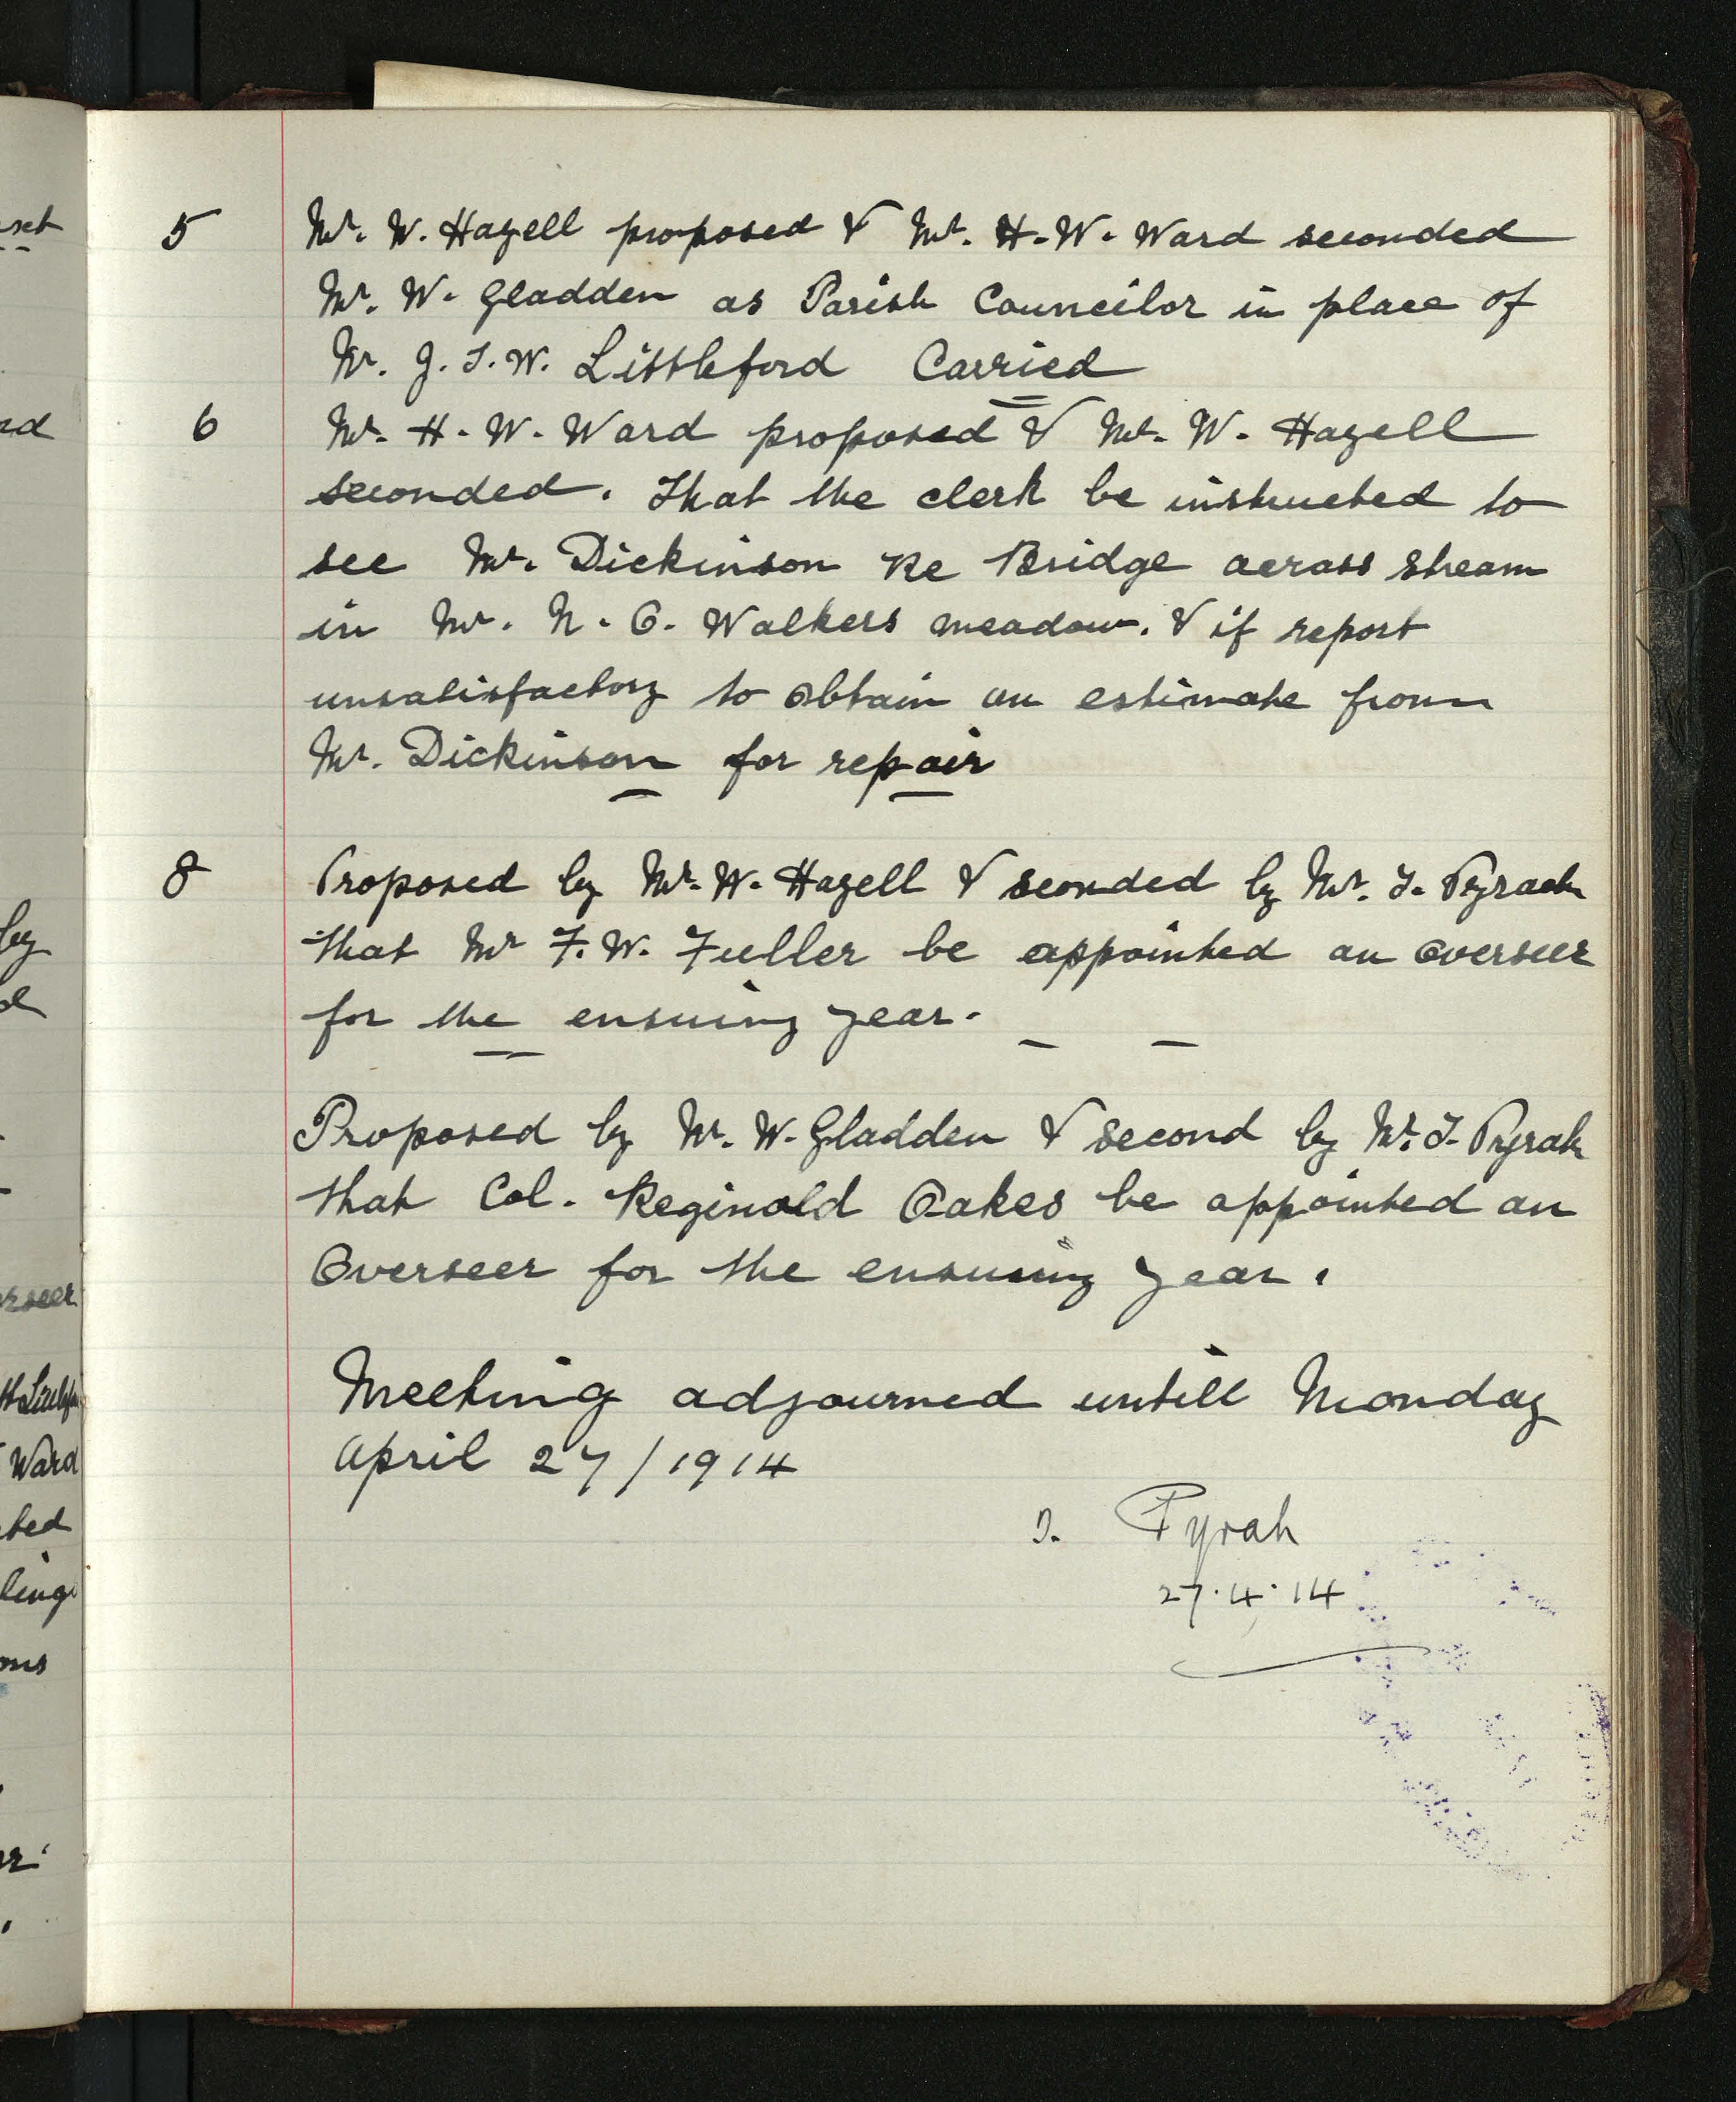 5 Mr. W. Hazell proposed & Mr. H. W. Ward seconded
Mr. W. Gladden as Parish Councilor in place of
Mr. J. T. W. Littleford Carried
6 Mr. H. W. Ward proposed & Mr. W. Hazell
seconded. That the clerk be instructed to
see Mr. Dickinson Re Bridge across stream
in Mr. N. O. Walkers meadow. & if report
unsatisfactory to obtain an estimate from
Mr. Dickinson for repair
8 Proposed by Mr. W. Hazell & seonded by Mr. T. Pyrah
that Mr F. W. Fuller be appointed an overseer
for the ensuing year.
Proposed by Mr. W. Gladden & second by Mr. T. Pyrah
that Col. Reginald Oakes be appointed an
Overseer for the ensuing year.
Meeting adjourned untill Monday
April 27/1914
T. Pyrah
27.4.14
by
erseer
Ward